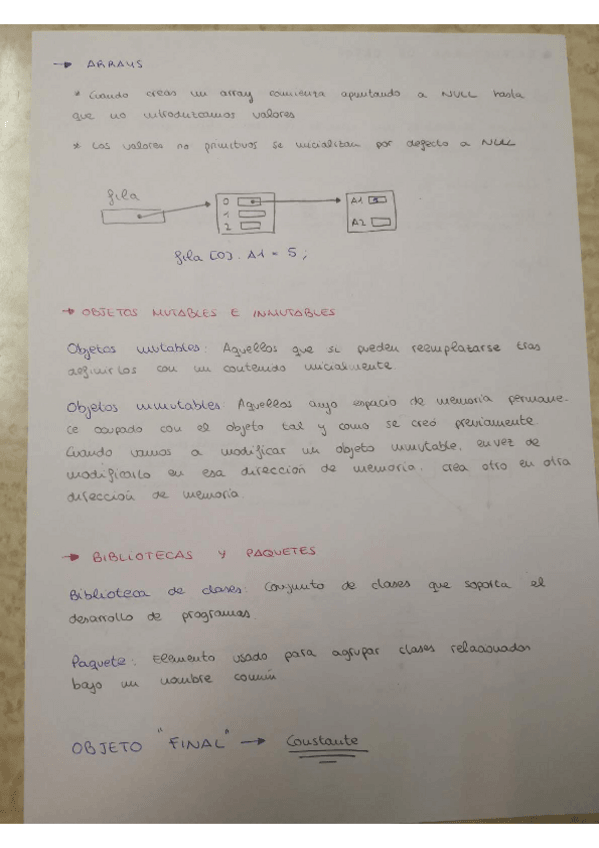 → ARRAYS
* Cuando creas un array comienza apuntando a NULL hasta
que no introduzcamos valores
* Los valores no primitivos se inicializan por defecto a NULL
fila
0
1
2
A1
A2
fila [0]. A1 = 5 ;
→ OBJETOS MUTABLES E INMUTABLES
Objetos mutables: Aquellos que si pueden reemplazarse tras
definirlos con un contenido inicialmente.
Objetos inmutables Aquellos cuyo espacio de memoria permane-
ce ocupado con el objeto tal y como se creó previamente.
Cuando vamos a modificar un objeto inmutable, en vez de
modificarlo en esa dirección de memoria, crea otro en otra
dirección de memoria.
→ BIBLIOTECAS Y PAQUETES
Biblioteca de clases: Conjunto de clases que soporta el
desarrollo de programas.
Paquete: Elemento usado para agrupar clases relacionadas
bajo un nombre común
OBJETO "FINAL" → Constante